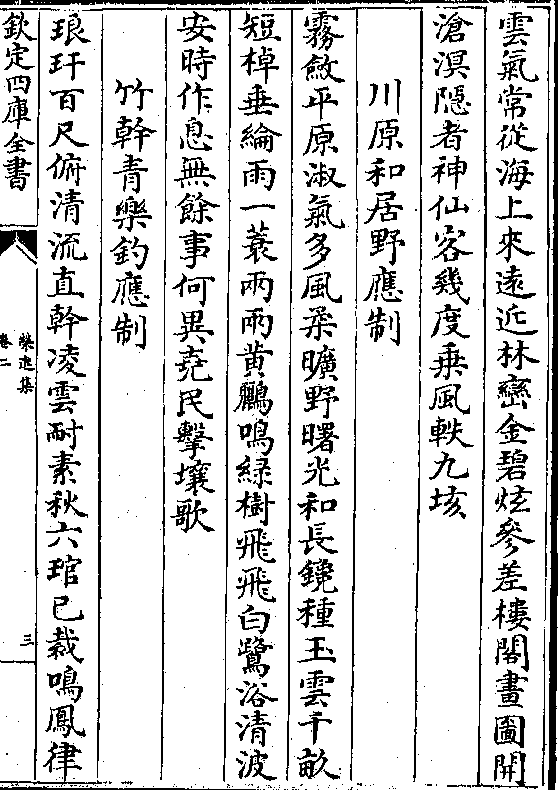 雲氣常從海上來逺近林巒金碧炫參差樓閣畫圖開
滄溟隠者神仙客幾度乗風軼九垓
川原和居野應制
霧斂平原淑氣多風柔曠野曙光和長鑱種玉雲千畝
短棹垂綸雨一蓑兩兩黄鸝鳴緑樹飛飛白鷺浴清波
安時作息無餘事何異堯民擊壤歌
竹幹青樂釣應制
琅玕百尺俯清流直幹凌雲耐素秋六琯已裁鳴鳳律
欽定四庫全書
榮進集
卷二
三